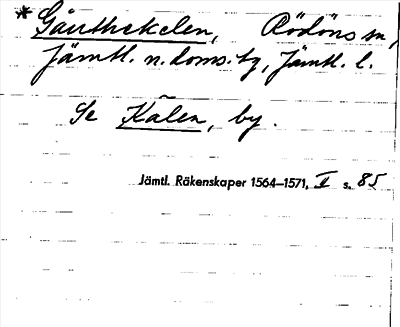 * Gåuthekelen, Rödöns sn,
Jämtl. n. doms. tg, Jämtl. l.
Se Kälen, by.
Jämtl. Räkenskaper 1564–1571, II s. 85